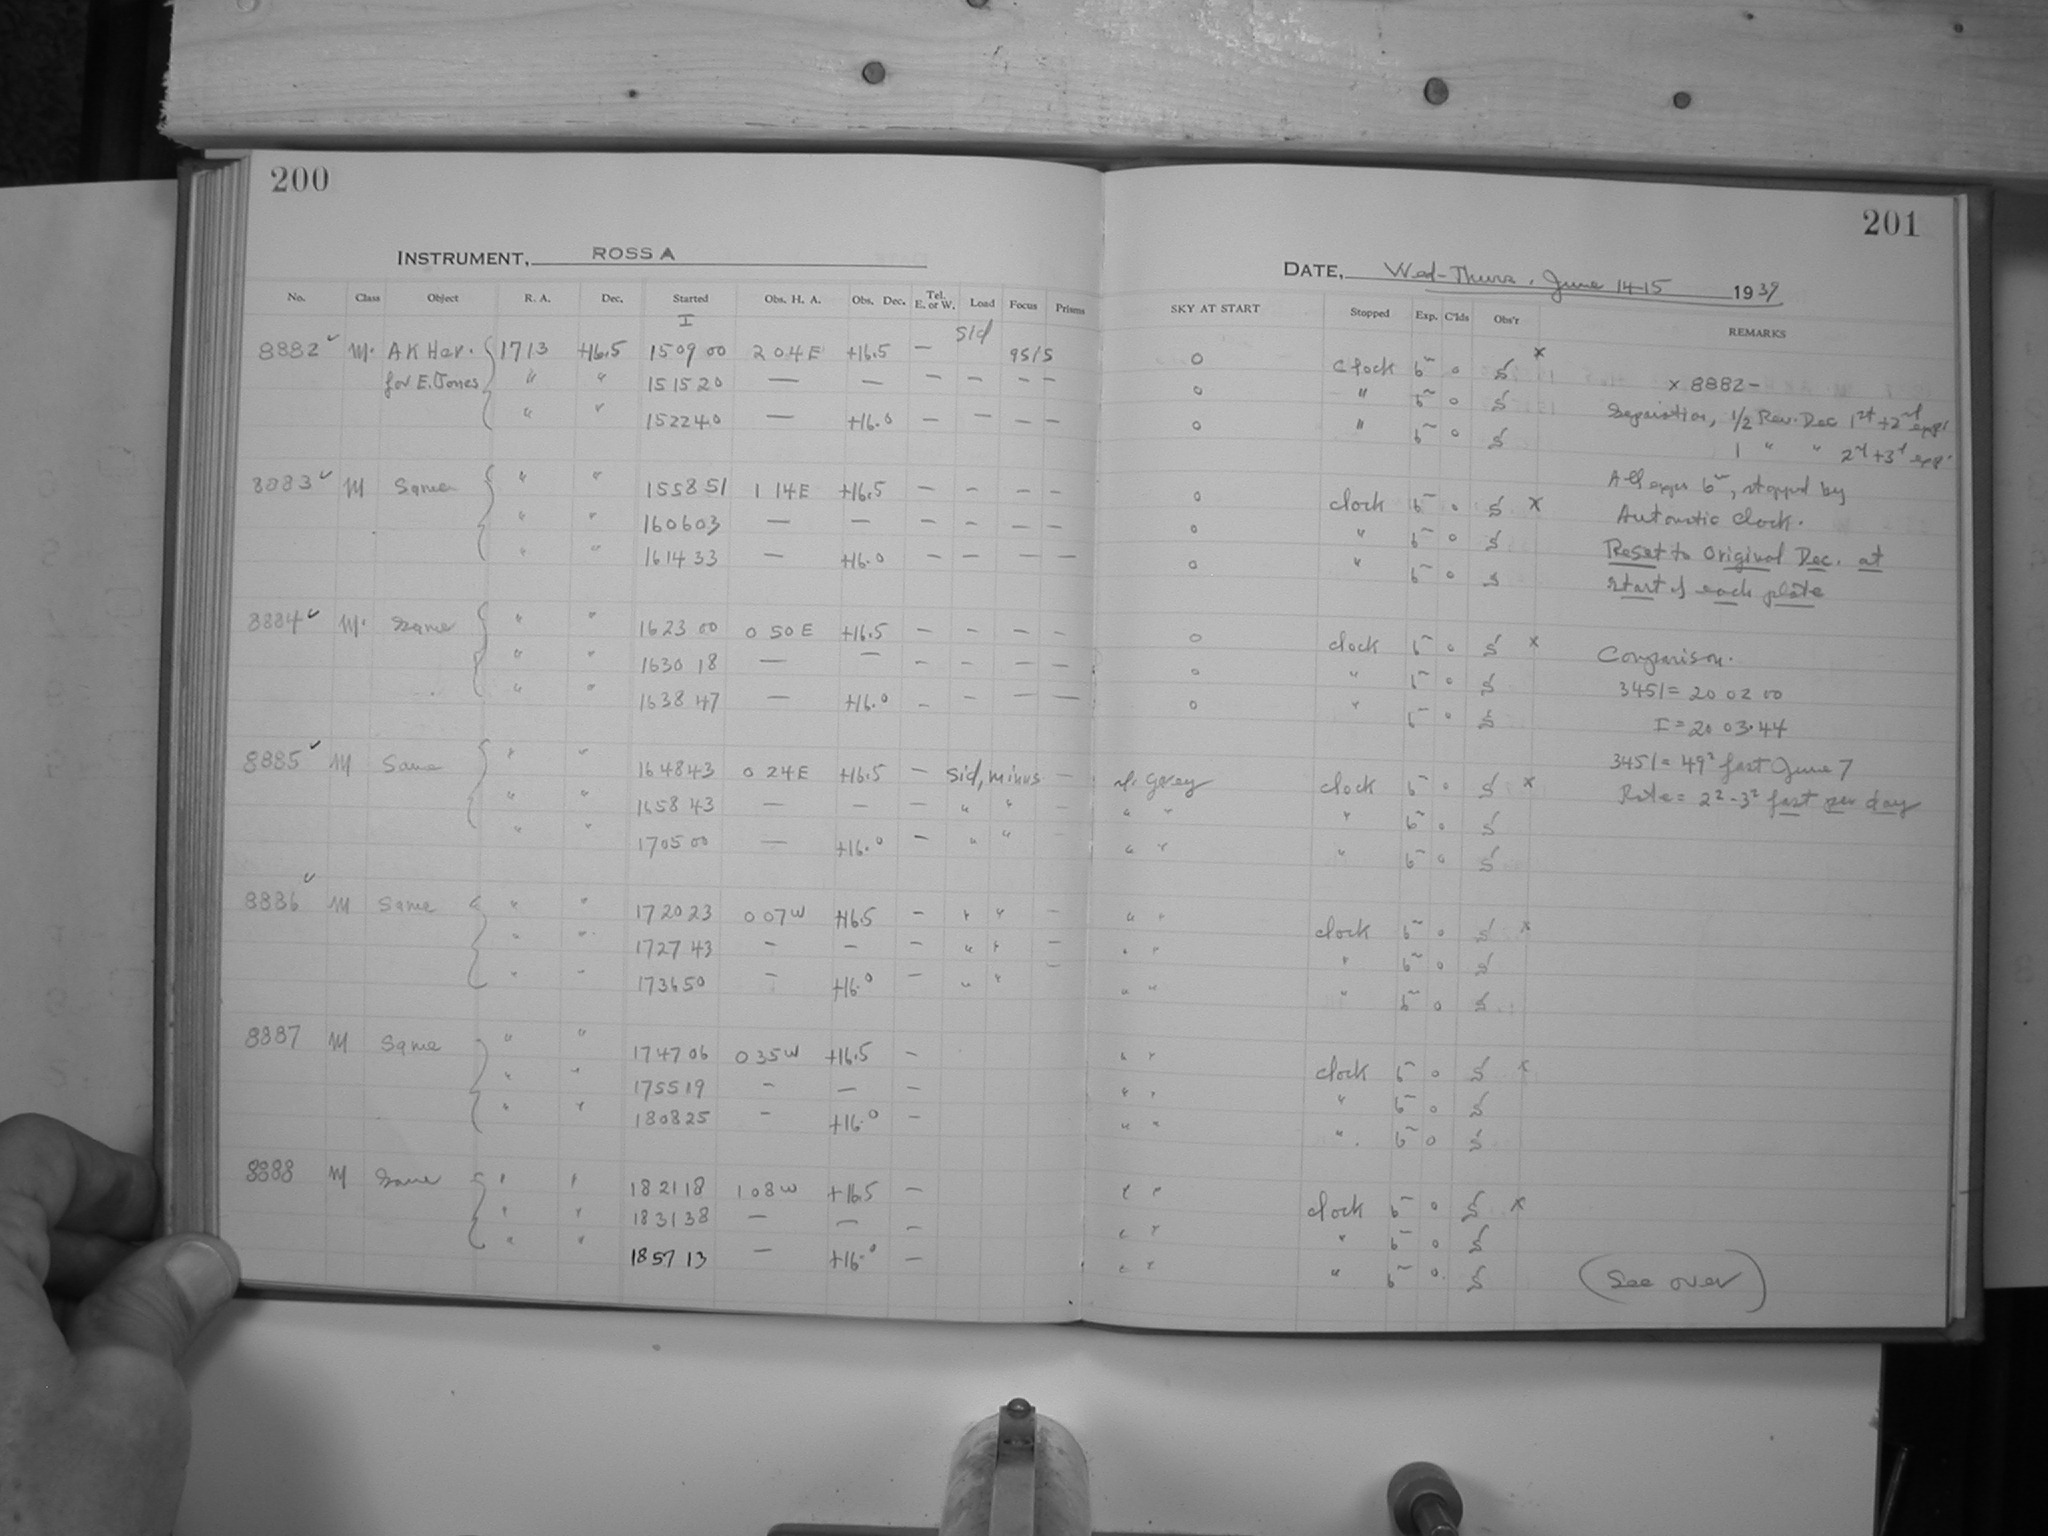 200
INSTRUMENT, ROSS A
No. Class Object R. A. Dec. Started Obs. H. A. Obs. Dec. Tel. E. or W. Load Focus Prisms
I
8882 ✓ M. AK Her. 1713 +16.5 150900 204E +16.5 — Sid 95/5
for E. Jones " " 151520 — — — — — —
" " 152240 — +16.0 — — — —
8883 ✓ M Same " " 155851 1 14E +16.5 — — — —
" " 160603 — — — — — —
" " 161433 — +16.0 — — — —
8884 ✓ M. Same " " 162300 0 50E +16.5 — — — —
" " 163018 — — — — — —
" " 163847 — +16.0 — — — —
8885 ✓ M Same " " 164843 0 24E +16.5 — Sid, minus —
" " 165843 — — — " " —
" " 170500 — +16.0 — " " —
8886 ✓ M Same " " 172023 0 07W +16.5 — " " —
" " 172743 — — — " " —
" " 173650 — +16.0 — " " —
8887 M Same " " 174706 0 35W +16.5 —
" " 175519 — — —
" " 180825 — +16.0 —
8888 M Same " " 182118 1 08W +16.5 —
" " 183138 — — —
" " 185713 — +16.0 —
201
DATE, Wed-Thurs, June 14-15 1939
SKY AT START Stopped Exp. C'lds Obs'r REMARKS
0 Clock 6m 0 x
0 " 6m 0
0 " 6m 0
0 clock 6m 0 x
0 " 6m 0
0 " 6m 0
0 clock 6m 0 x
0 " 6m 0
0 " 6m 0
Grey clock 6m 0 x
" " " 6m 0
" " " 6m 0
" " clock 6m 0 x
" " " 6m 0
" " " 6m 0
" " clock 6m 0 x
" " " 6m 0
" " " 6m 0
" " clock 6m 0 x
" " " 6m 0
" " " 6m 0
x 8882-
Separation, 1/2 Rev. Dec 1st + 2nd exp.
1 " " 2d + 3d exp.
All exps 6m, stopped by
Automatic Clock.
Reset to Original Dec. at
start of each plate
Comparison.
3451 = 20 02 00
I = 20 03.44
3451 = 49s fast June 7
Rate = 2s-3s fast per day
(See over)